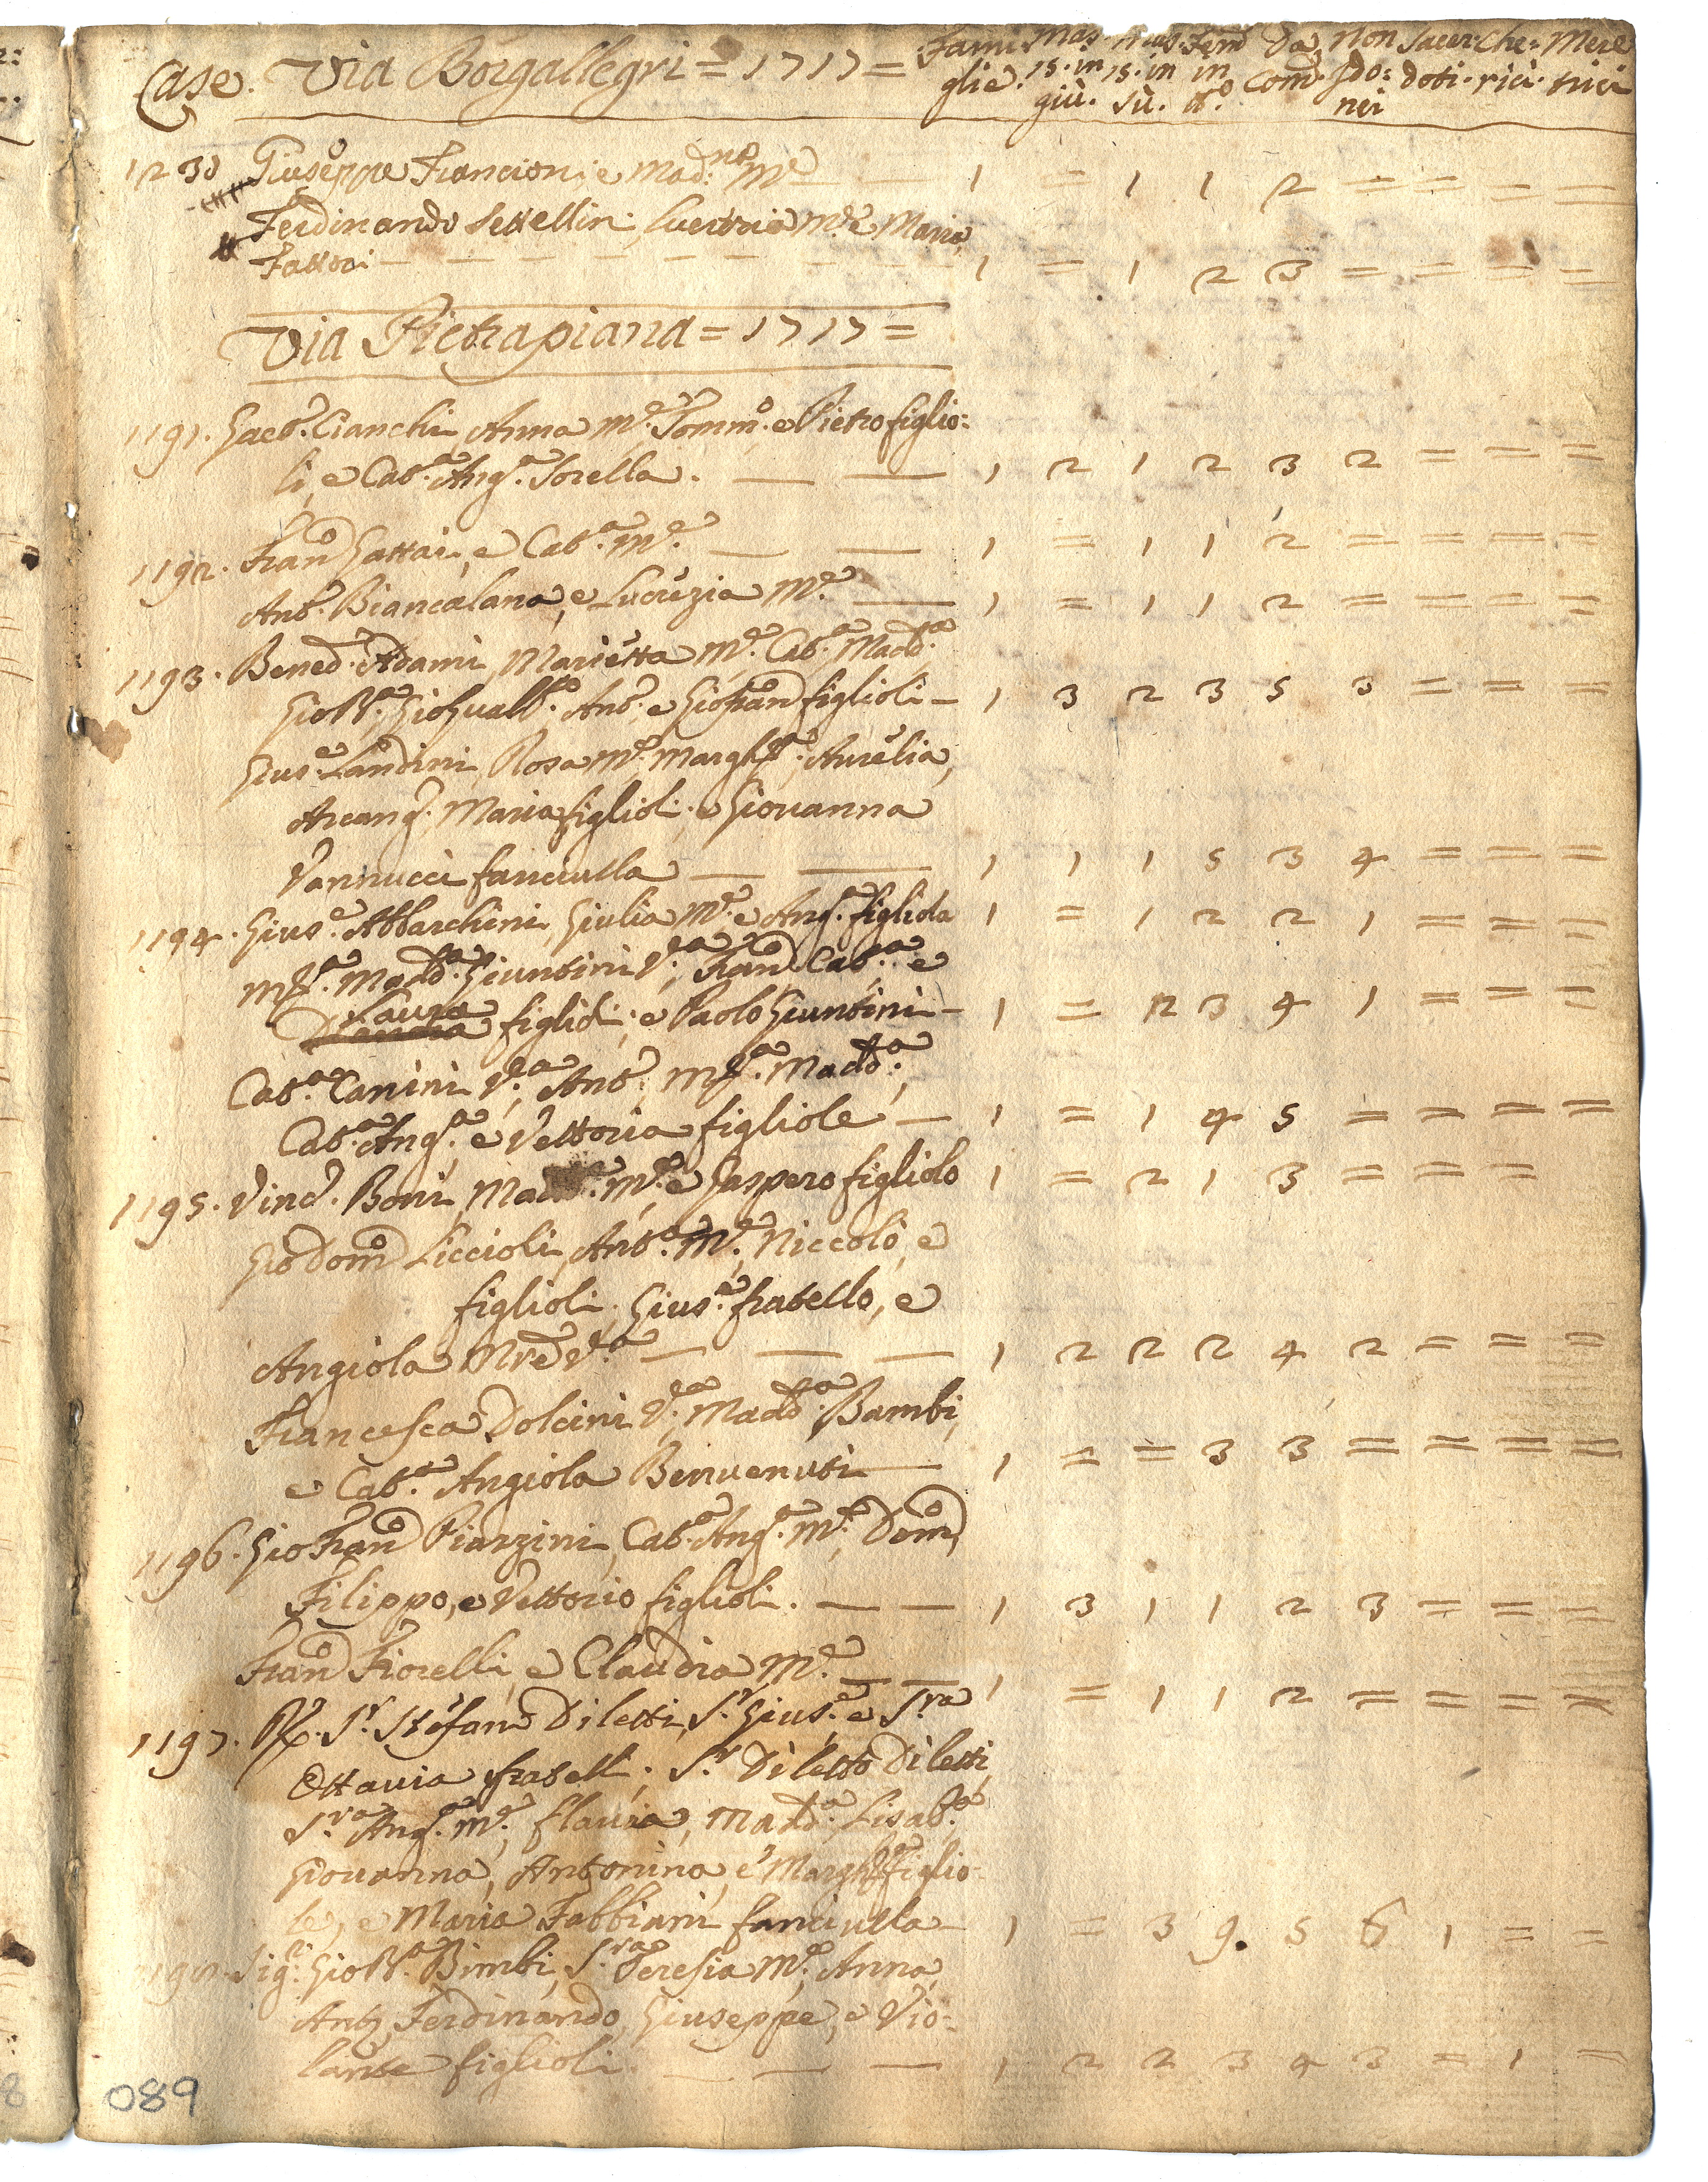 Case. Via Borgallegri = 1717 = Fami: Mas. Mas. Fem Da Non Sacer: Che: Mere
glie. 15. in 15. in in Com. Ido: doti. rici. trici
giù. sù. d.o nei
1230 Giuseppe Francioni, e Mad.na M.e — 1 = 1 1 2 = = = =
Ferdinando Settellini, Lucrezia M.e e Maria
Fattori — — — — — — — 1 = 1 2 3 = = = =
Via Pietrapiana = 1717 =
1191. Jac.o Cianchi Anna M.e Tomm.o e Pietro figlio:
li, e Cat.a Ang.a Sorella. — — 1 2 1 2 3 2 = = =
1192. Fran.o Gattai, e Cat.a M.e — — 1 = 1 1 2 = = = =
Ant.o Biancalana, e Lucrezia M.e — 1 = 1 1 2 = = = =
1193. Bened.o Adami, Marietta M.e Cat.a Madd.a
GioB.a GioGualb.o Ant.o e Giofran.o figlioli — 1 3 2 3 5 3 = = =
Gius.e Landini, Rosa M.e Margh.a, Aurelia,
Arcang.a, Maria figlioli, e Giovanna
Vannucci fanciulla — — 1 1 1 5 3 4 = = =
1194. Gius.e Abbarchini, Giulia M.e e Ang.a figliola 1 = 1 2 2 1 = = =
M.a Madd.a Giuntini V.a, Fran.o Cat.a e
Laura figlioli, e Paolo Giuntini — 1 = 2 3 4 1 = = =
Cat.a Canini V.a, Ant.o, M.a Madd.a,
Cat.a Ang.a e Vettoria figliole — 1 = 1 4 5 = = = =
1195. Vinc.o Boni, M.e e Gaspero figliolo 1 = 2 1 3 = = =
Giodom.o Liccioli, Ant.a M.e, Niccolò, e
figlioli, Gius.e fratello, e
Angiola Mre V.a — — — 1 2 2 2 4 2 = = =
Francesca Dolcini V.a, Madd.a Bambi,
e Cat.a Angiola Benvenuti — 1 = = 3 3 = = = =
1196. GioFran.o Piarzini, Cat.a Ang.a M.e, Dom.o
Filippo, e Vettorio figlioli. — — 1 3 1 1 2 3 = = =
Fran.o Fiorelli, e Claudia M.e — — 1 = 1 1 2 = = = =
1197. S.r Stefano Diletti, S.r Gius.e e S.ra
Ottavia fratelli, S.r Diletto Diletti,
S.ra Ang.a M.e, Flavia, Madd.a Lisab.a
Giovanna, Antonina, e Margh.a figlio:
le, e Maria Fabbiani fanciulla — 1 = 3 9. 5 6 1 = =
Sig.r GioB.a Bimbi, S.ra Teresia M.e, Anna,
Ant.o, Ferdinando, Giuseppe, e Vio:
lante figlioli — — — 1 2 2 3 4 3 = 1 =
089